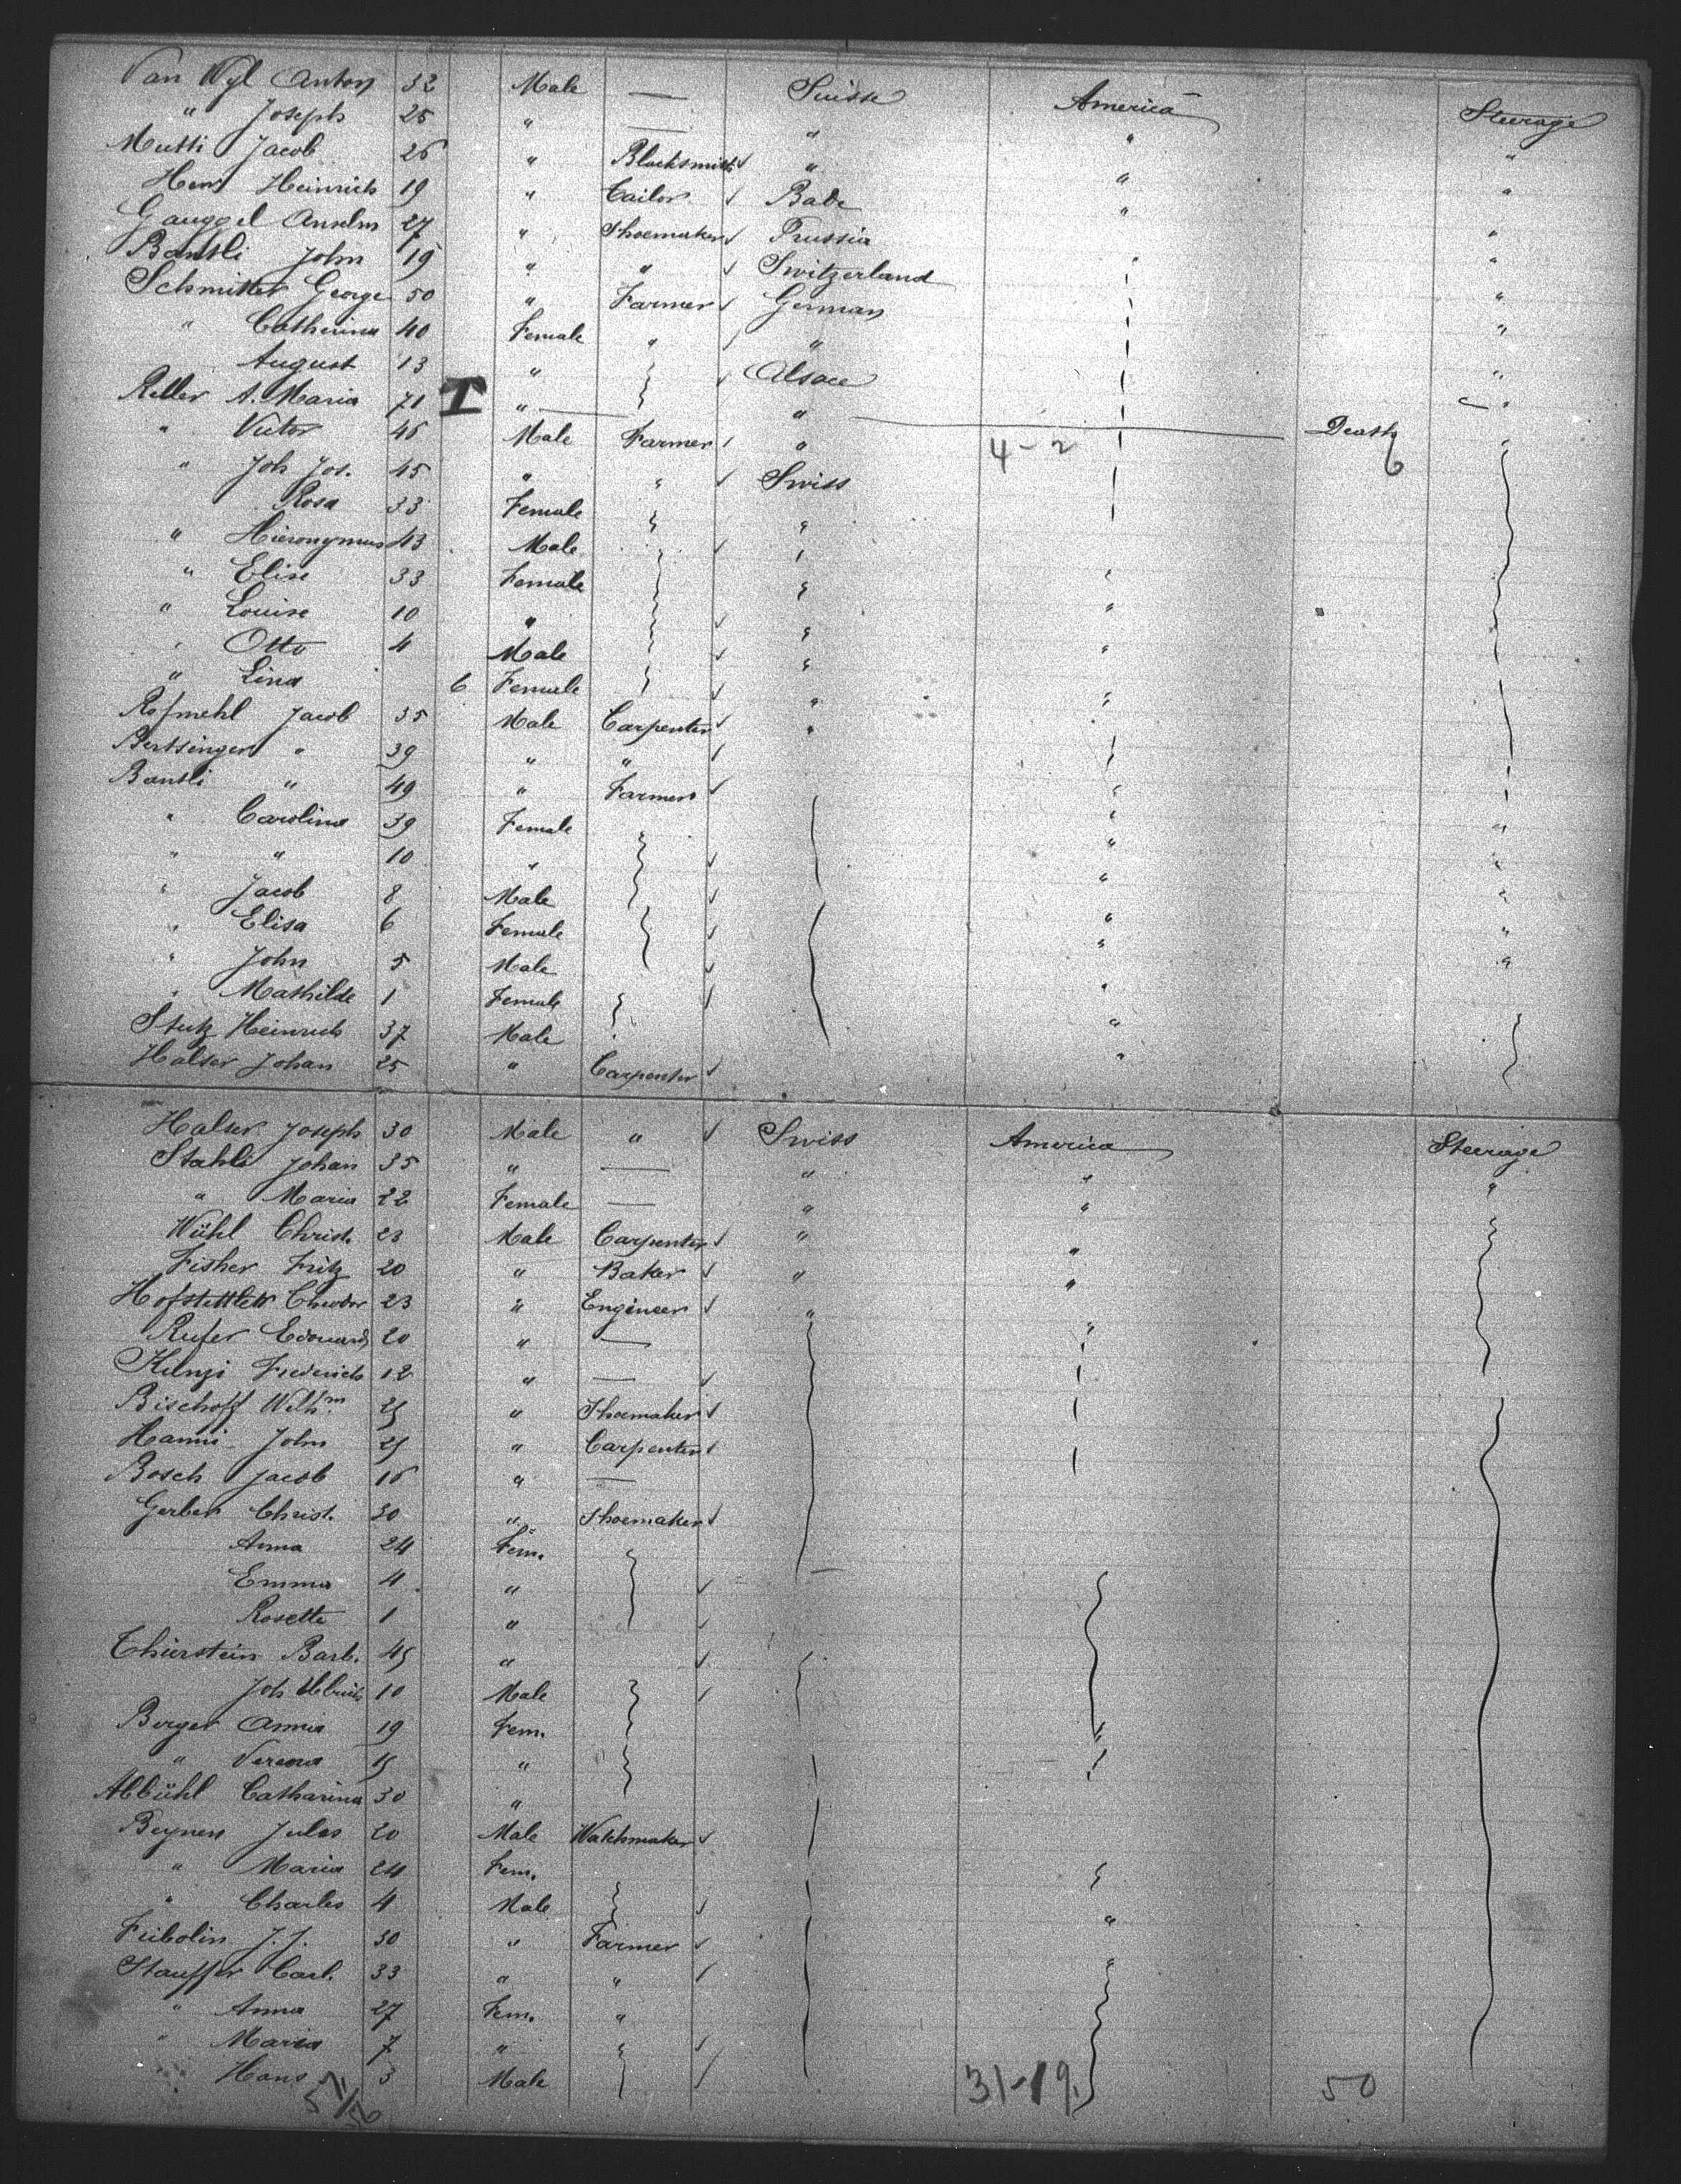 Van Wyl Anton 32 Male — Suisse America Steerage
" Joseph 25 " — " " "
Mutti Jacob 26 " Blacksmith " " "
Heinrich 19 " Tailor Bade " "
Gauggel Anselm 27 " Shoemaker Prussia "
Bantli John 19 " " Switzerland " "
Schmitter George 50 " Farmer German "
" Catherina 40 Female " " "
August 13 " Alsace "
Keller A. Maria 71 " " Death "
" Victor 45 Male Farmer " 4-2
" Joh Jos. 45 " " Swiss
Rosa 33 Female "
" Hieronymus 43 Male
" Elise 33 Female
" Louise 10 " "
" Otto 4 Male "
" Lina 6 Female
Jacob 35 Male Carpenter "
Bertsinger " 39 " "
Bantli " 49 " Farmer "
" Carolina 39 Female "
" " 10 " " "
" Jacob 8 Male " "
" Elisa 6 Female " "
" John 5 Male " "
" Mathilde 1 Female "
Stutz Heinrich 37 Male "
Halser Johan 25 " Carpenter "
Halser Joseph 30 Male " Swiss America Steerage
Stahli Johan 35 " — " " "
" Maria 22 Female — " "
Wühl Christ. 23 Male Carpenter " "
Fisher Fritz 20 " Baker " "
Hofstettler 23 " Engineer " "
Rufer Edouard 20 " —
Frederich 12 " —
Bischoff Wilhm 25 " Shoemaker
Hanni John 25 " Carpenter
Bosch Jacob 16 " —
Gerber Christ. 30 " Shoemaker
Anna 24 Fem.
Emma 4 "
Rosette 1 "
Thierstein Barb. 45 "
Joh Ulrich 10 Male
Berger Annia 19 Fem.
" Verena 15 "
Abbühl Catharina 30 "
Beynen Jules 20 Male Watchmaker
" Maria 24 Fem.
" Charles 4 Male "
J. J. 30 " Farmer "
Stauffer Carl. 33 " "
" Anna 27 Fem. "
" Maria 7 " "
" Hans 3 Male 31-19. 50